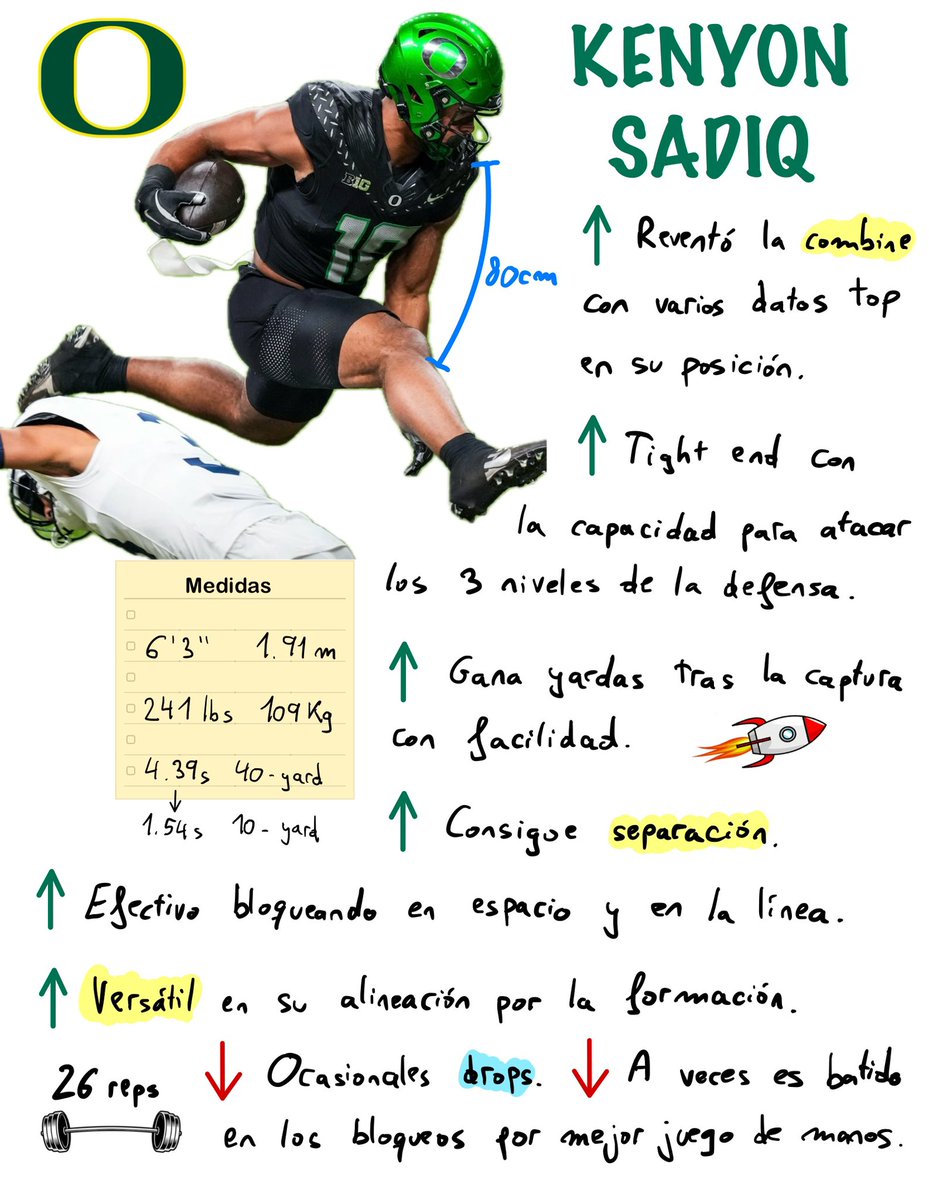 O
KENYON
SADIQ
BIG
O
18
80cm
↑ Reventó la combine
con varios datos top
en su posición.
↑ Tight end con
la capacidad para atacar
los 3 niveles de la defensa.
Medidas
6'3" 1.91 m
241 lbs 109 Kg
4.39s 40-yard
↓
1.54s 10-yard
↑ Gana yardas tras la captura
con facilidad.
↑ Consigue separación.
↑ Efectivo bloqueando en espacio y en la línea.
↑ Versátil en su alineación por la formación.
26 reps
↓ Ocasionales drops. ↓ A veces es batido
en los bloqueos por mejor juego de manos.